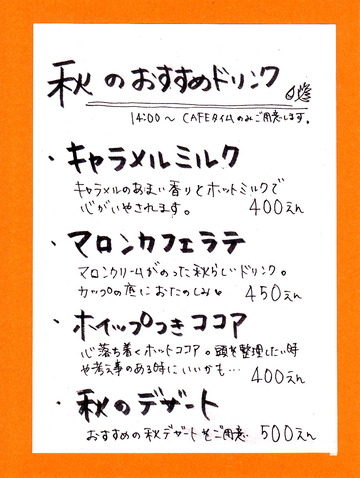 秋のおすすめドリンク
14:00〜 CAFEタイムのみご用意します。
・キャラメルミルク
キャラメルのあまい香りとホットミルクで
心がいやされます。 400えん
・マロンカフェラテ
マロンクリームがのった秋らしいドリンク。
カップの底におたのしみ♥ 450えん
・ホイップつきココア
心落ち着くホットココア。頭を整理したい時
や考え事のある時にいいかも… 400えん
・秋のデザート
おすすめの秋デザートをご用意 500えん